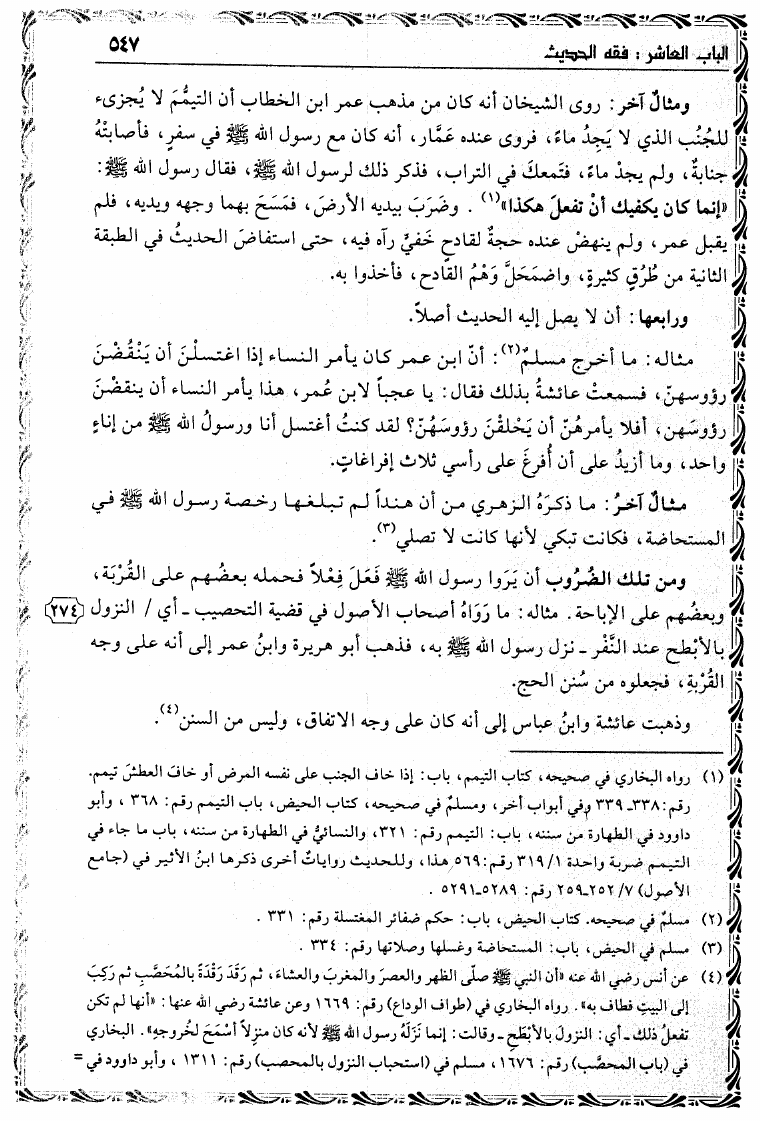 الباب العاشر : فقه الحديث
٥٤٧
ومثالٌ آخر : روى الشيخان أنه كان من مذهب عمر ابن الخطاب أن التيمُّمَ لا يُجزىء
للجُنُب الذي لا يَجِدُ ماءً، فروى عنده عَمَّار، أنه كان مع رسول الله ﷺ في سفرٍ، فأصابتْهُ
جنابةٌ، ولم يجدْ ماءً، فتَمعكَ في التراب، فذكر ذلك لرسول الله ﷺ، فقال رسول الله ﷺ :
«إنما كان يكفيك أنْ تفعلَ هكذا»(١) . وضَرَبَ بيديه الأرضَ، فمَسَحَ بهما وجهه ويديه، فلم
يقبل عمر، ولم ينهضْ عنده حجةٌ لقادحٍ خَفيٍّ رآه فيه، حتى استفاضَ الحديثُ في الطبقة
الثانية من طُرُقٍ كثيرةٍ، واضمَحَلَّ وَهْمُ القادح، فأخذوا به.
ورابعها : أن لا يصل إليه الحديث أصلاً.
مثاله : ما أخرج مسلمٌ(٢) : أنّ ابن عمر كان يأمر النساء إذا اغتسلْنَ أن يَنْقُضْنَ
رؤوسهنّ، فسمعتْ عائشةُ بذلك فقال : يا عجباً لابن عُمر، هذا يأمر النساء أن ينقضْنَ
رؤوسَهن، أفلا يأمرهُنّ أن يَحْلقْنَ رؤوسَهُنّ؟ لقد كنتُ أغتسل أنا ورسولُ الله ﷺ من إناءٍ
واحد، وما أزيدُ على أن أُفرغَ على رأسي ثلاث إفراغاتٍ.
مثالٌ آخرُ : ما ذكرَهُ الزهري من أن هنداً لم تبلغها رخصة رسول الله ﷺ في
المستحاضة، فكانت تبكي لأنها كانت لا تصلي(٣).
ومن تلك الضُرُوب أن يَرَوا رسول الله ﷺ فَعَلَ فِعْلاً فحمله بعضُهم على القُرْبَة،
وبعضُهم على الإباحة. مثاله : ما رَوَاهُ أصحاب الأصول في قضية التحصيب ـ أي / النزول
٢٧٤
بالأبْطح عند النَّفْر ـ نزل رسول الله ﷺ به، فذهب أبو هريرة وابنُ عمر إلى أنه على وجه
القُرْبةِ، فجعلوه من سُنن الحج.
وذهبت عائشة وابنُ عباس إلى أنه كان على وجه الاتفاق، وليس من السنن(٤).
(١) رواه البخاري في صحيحه، كتاب التيمم، باب: إذا خاف الجنب على نفسه المرض أو خافَ العطشَ تيمم.
رقم: ٣٣٨ـ ٣٣٩ وفي أبواب أخر، ومسلم في صحيحه، كتاب الحيض، باب التيمم رقم: ٣٦٨ ، وأبو
داوود في الطهارة من سننه، باب: التيمم رقم: ٣٢١، والنسائيُّ في الطهارة من سننه، باب ما جاء في
التيمم ضربة واحدة ٣١٩/١ رقم: ٥٦٩ هذا، وللحديث رواياتٌ أخرى ذكرها ابنُ الأثير في (جامع
الأصول) ٢٥٢/٧ـ٢٥٩ رقم: ٥٢٨٩ـ٥٢٩١ .
(٢) مسلمٌ في صحيحه. كتاب الحيض، باب: حكم ضفائر المغتسلة رقم: ٣٣١ .
(٣) مسلم في الحيض، باب: المستحاضة وغسلها وصلاتها رقم: ٣٣٤ .
(٤) عن أنس رضي الله عنه «أن النبي ﷺ صلّى الظهر والعصرَ والمغربَ والعشاءَ، ثم رَقَدَ رَقْدَةً بالمُحَصَّبِ ثم رَكِبَ
إلى البيتِ فطاف به». رواه البخاري في (طواف الوداع) رقم: ١٦٦٩ وعن عائشة رضي الله عنها: «أنها لم تكن
تفعلُ ذلك ـ أي: النزولَ بالأَبْطَحِ ـ وقالت: إنما نَزَلَهُ رسول الله ﷺ لأنه كان منزلاً أسْمَحَ لخُروجهِ». البخاري
في (باب المحصَّب) رقم: ١٦٧٦، مسلم في (استحباب النزول بالمحصب) رقم: ١٣١١ ، وأبو داوود في =